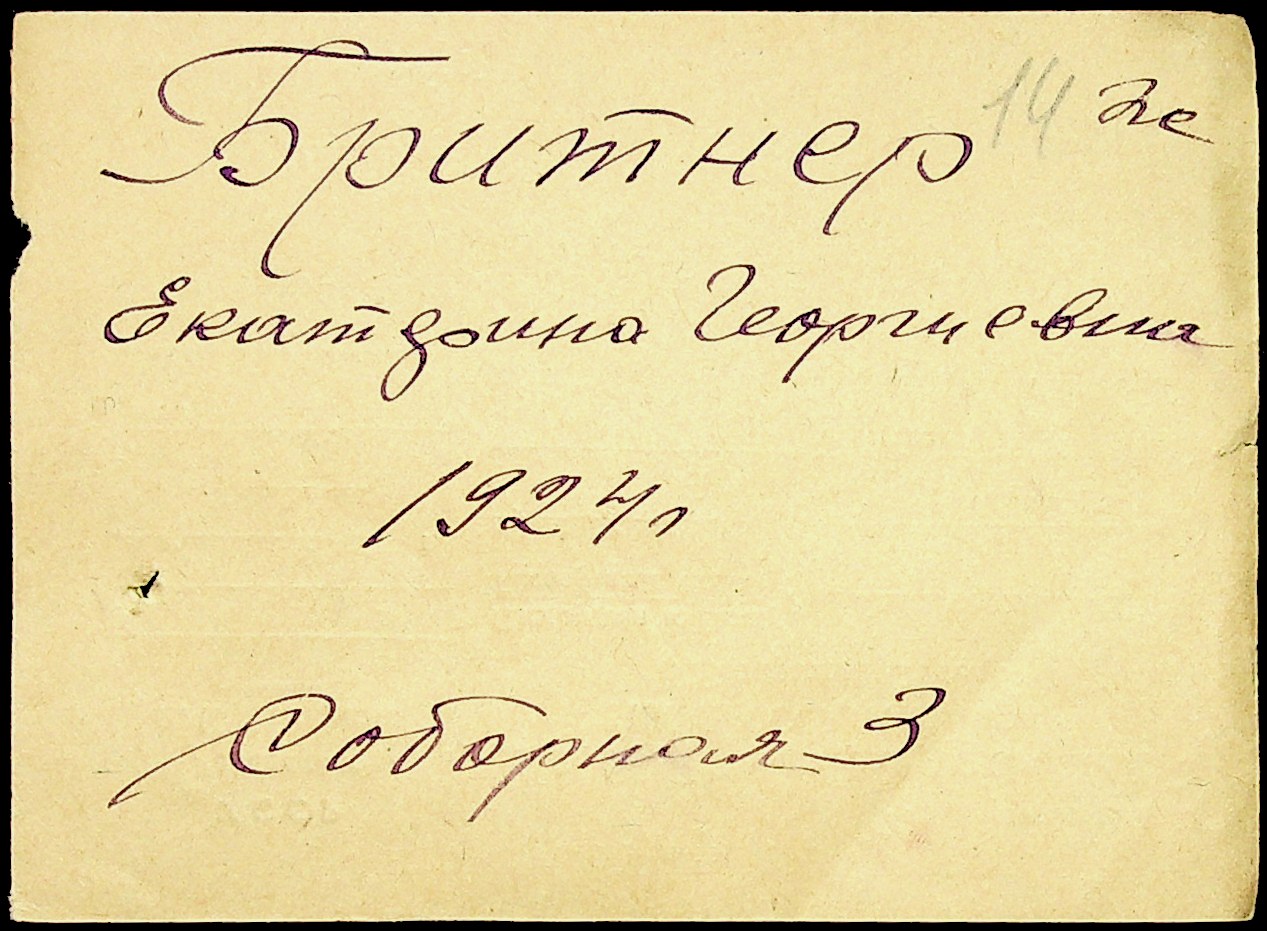 Бритнер 14
Екатерина Георгиевна
1924г
Соборная 3